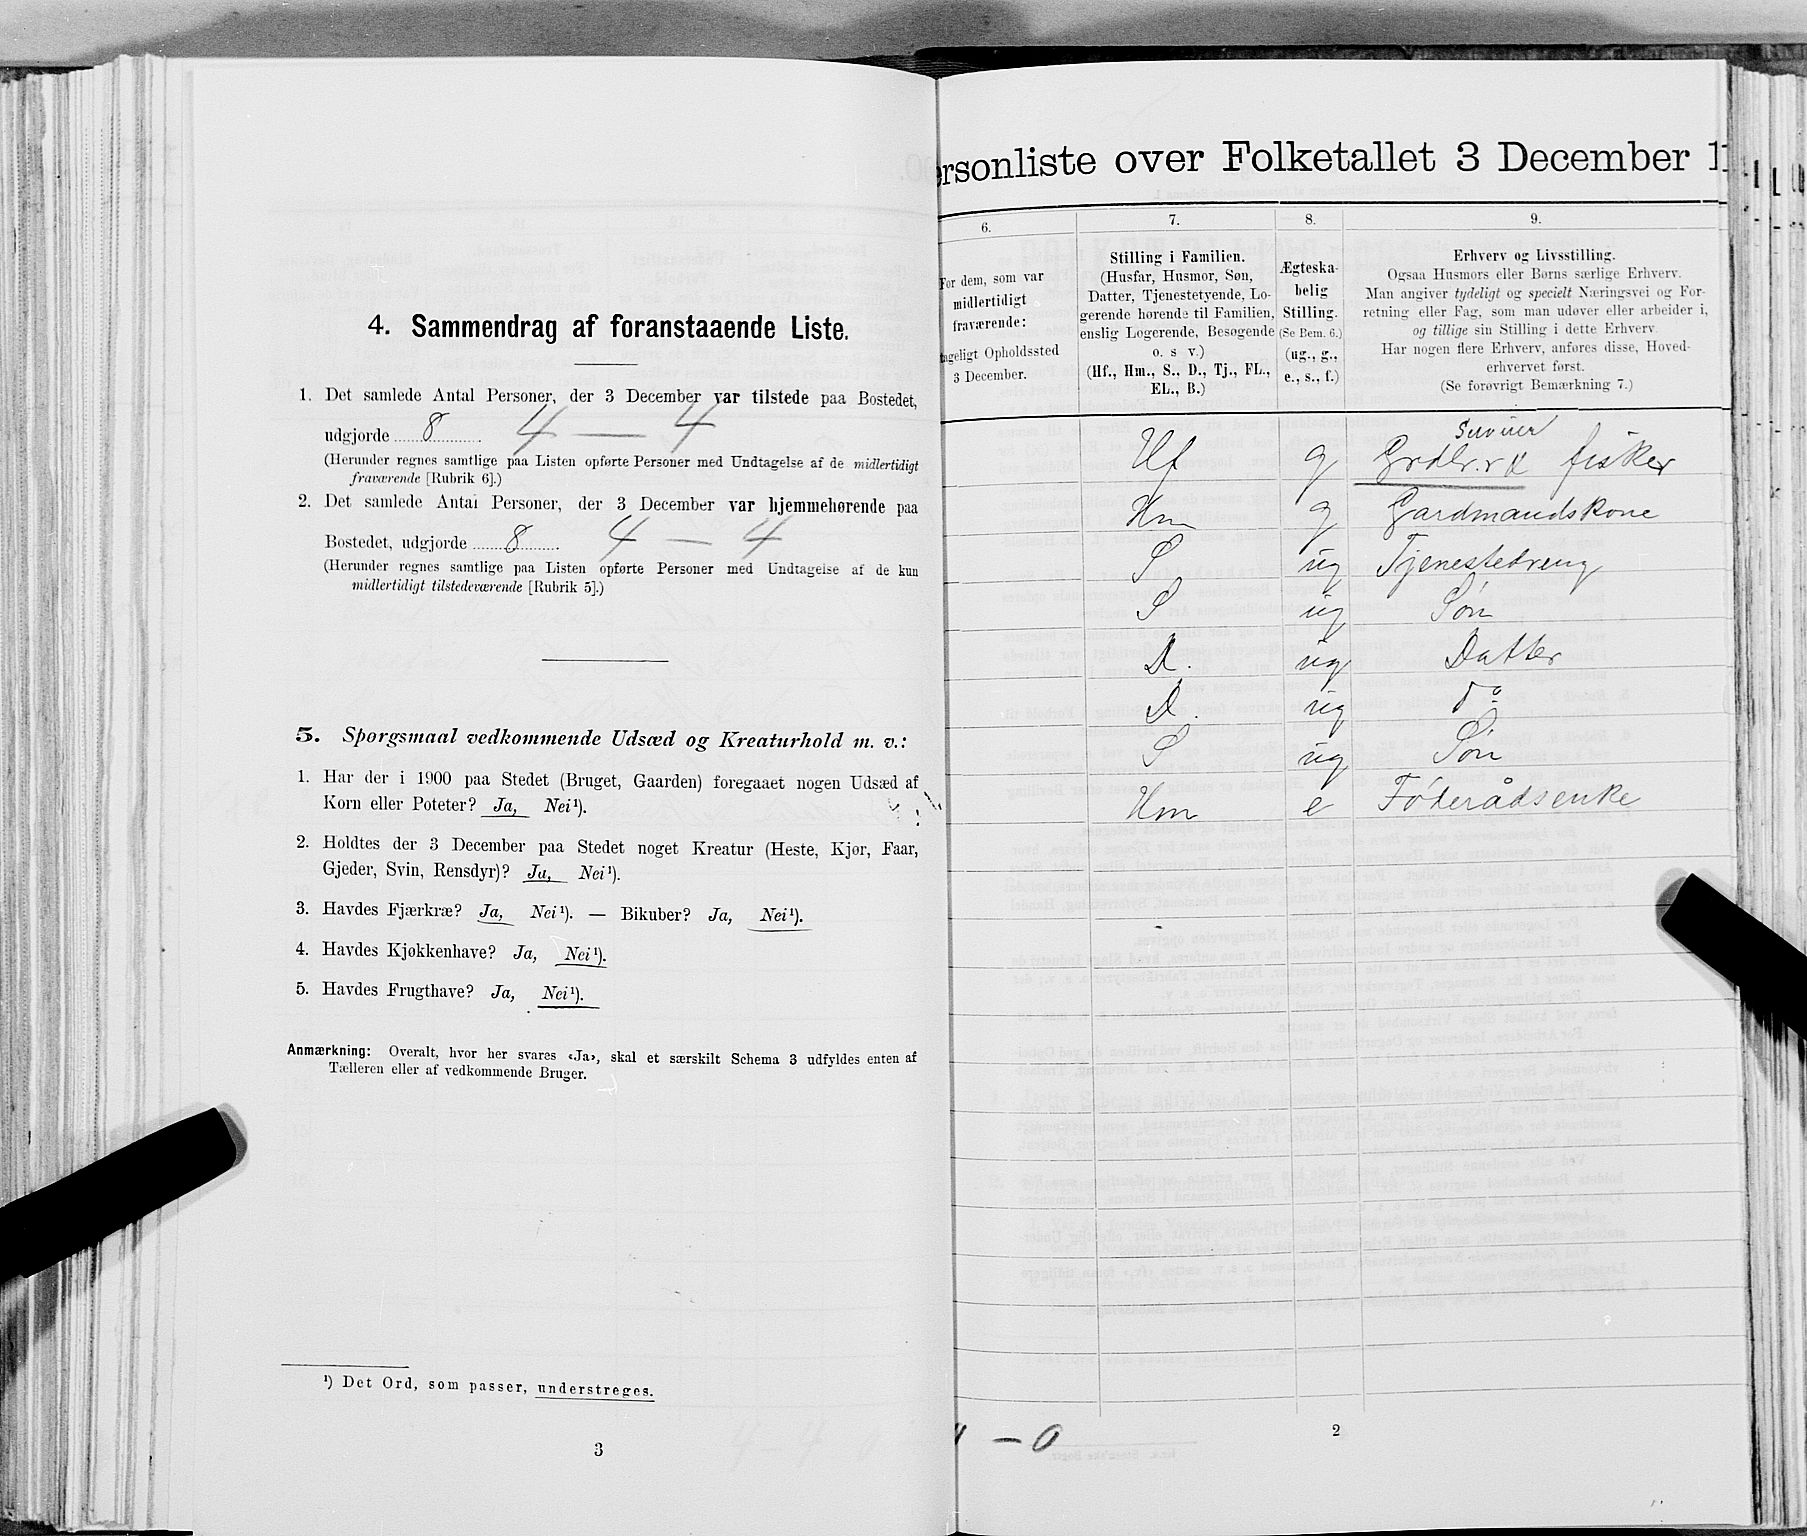 4. Sammendrag af foranstaaende Liste.
1. Det samlede Antal Personer, der 3 December var tilstede paa Bostedet,
udgjorde 8 4 — 4
(Herunder regnes samtlige paa Listen opførte Personer med Undtagelse af de midlertidigt
fraværende [Rubrik 6].)
2. Det samlede Antal Personer, der 3 December var hjemmehørende paa
Bostedet, udgjorde 8 4 — 4
(Herunder regnes samtlige paa Listen opførte Personer med Undtagelse af de kun
midlertidigt tilstedeværende [Rubrik 5].)
5. Spørgsmaal vedkommende Udsæd og Kreaturhold m. v.:
1. Har der i 1900 paa Stedet (Bruget, Gaarden) foregaaet nogen Udsæd af
Korn eller Poteter? Ja, Nei¹).
2. Holdtes der 3 December paa Stedet noget Kreatur (Heste, Kjør, Faar,
Gjeder, Svin, Rensdyr)? Ja, Nei¹).
3. Havdes Fjærkræ? Ja, Nei¹). — Bikuber? Ja, Nei¹).
4. Havdes Kjøkkenhave? Ja, Nei¹).
5. Havdes Frugthave? Ja, Nei¹).
Anmærkning: Overalt, hvor her svares «Ja», skal et særskilt Schema 3 udfyldes enten af
Tælleren eller af vedkommende Bruger.
¹) Det Ord, som passer, understreges.
3
ersonliste over Folketallet 3 December 1
6.
For dem, som var
midlertidigt
fraværende:
ageligt Opholdssted
3 December.
7.
Stilling i Familien.
(Husfar, Husmor, Søn,
Datter, Tjenestetyende, Lo-
gerende hørende til Familien,
enslig Logerende, Besøgende
o. s v.)
(Hf., Hm., S., D., Tj., FL.,
EL., B.)
8.
Ægteska-
belig
Stilling.
(Se Bem. 6.)
(ug., g.,
e., s., f.)
9.
Erhverv og Livsstilling.
Ogsaa Husmors eller Børns særlige Erhverv.
Man angiver tydeligt og specielt Næringsvei og For-
retning eller Fag, som man udøver eller arbeider i,
og tillige sin Stilling i dette Erhverv.
Har nogen flere Erhverv, anføres disse, Hoved-
erhvervet først.
(Se forøvrigt Bemærkning 7.)
Hf g fisker
Hm g Gardmandskone
S ug Tjenestedreng
S ug Søn
D. ug Datter
D. ug do
S ug Søn
Hm e Føderådsenke
— 0
2